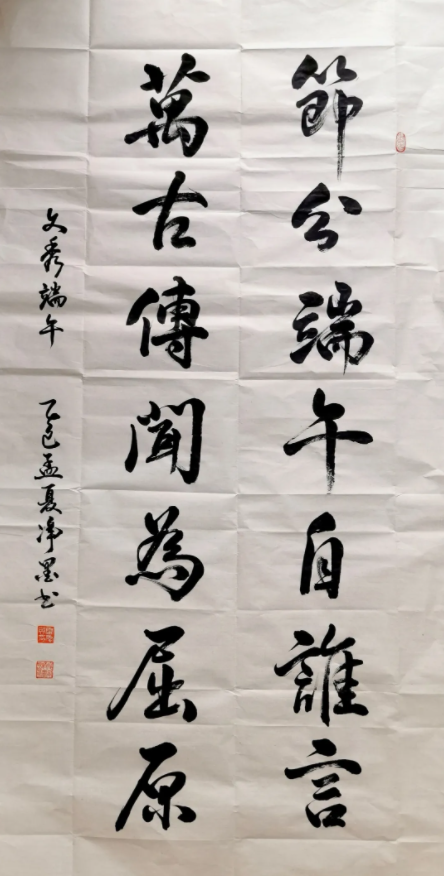 節分端午自誰言
萬古傳聞為屈原
文秀端午 乙巳孟夏净墨书